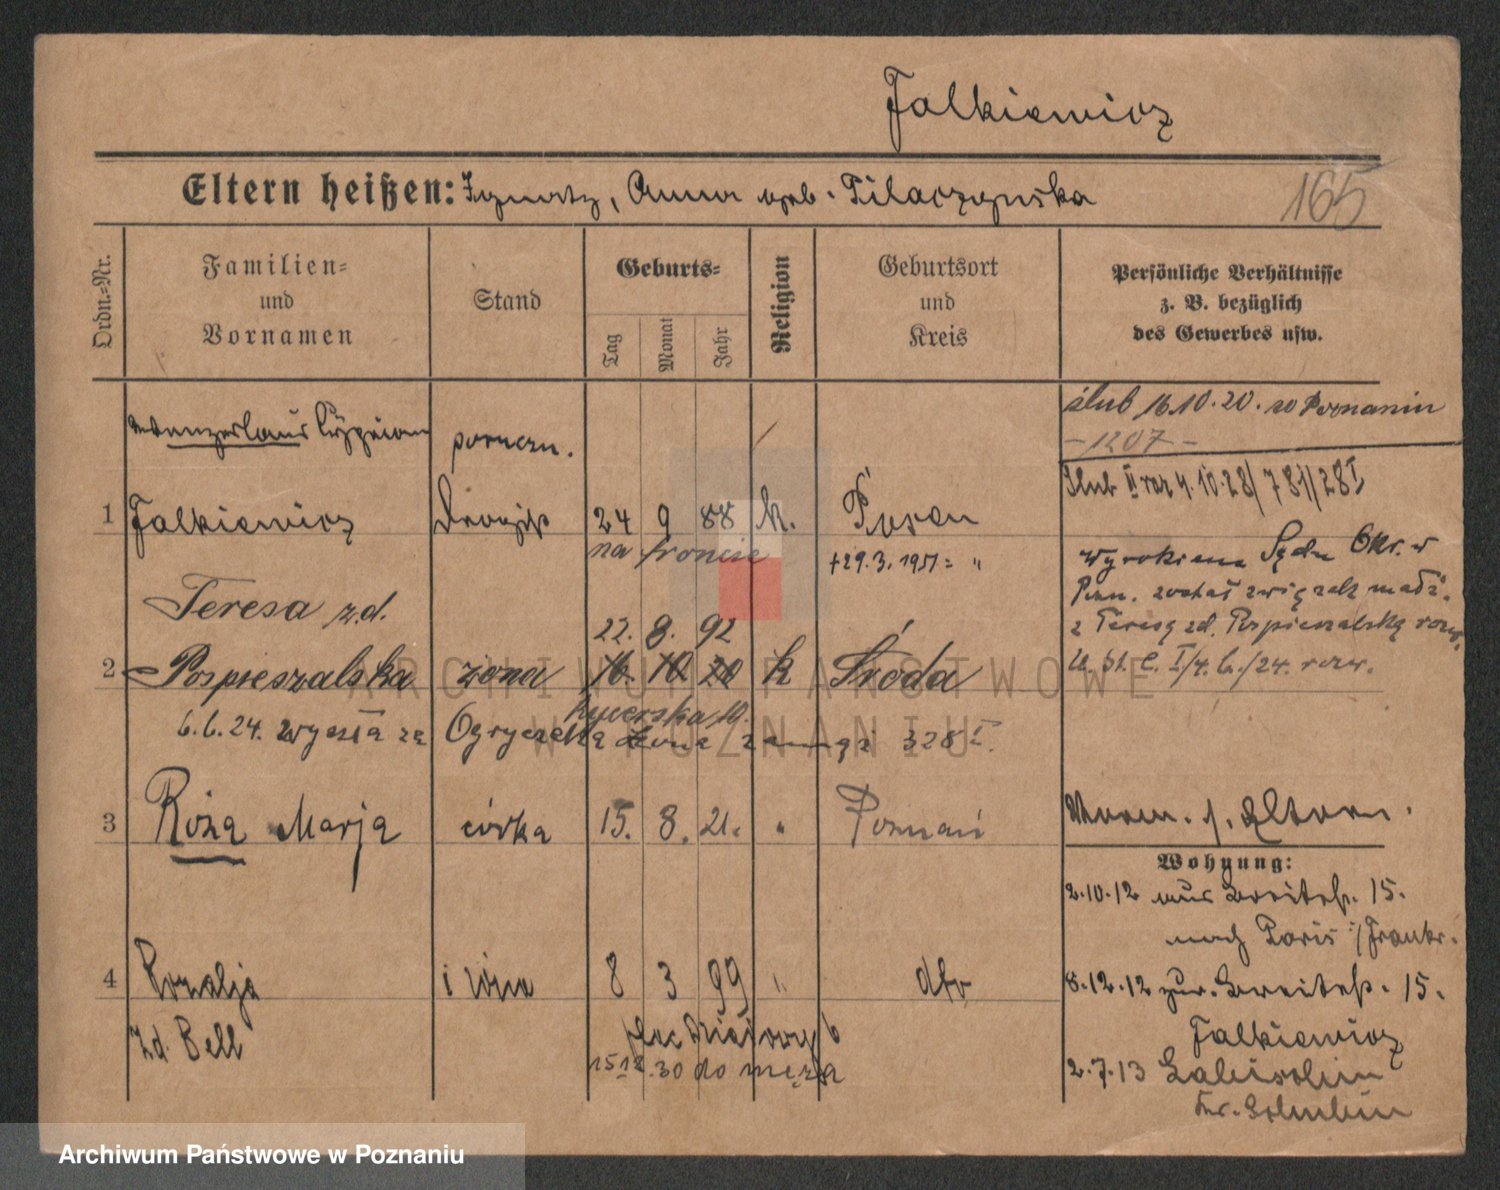 Falkiewicz
Eltern heißen: Ignatz, Anna geb. Pilaczynska
165
Ordn.-Nr.
Familien-
und
Vornamen
Stand
Geburts-
Tag
Monat
Jahr
Religion
Geburtsort
und
Kreis
Persönliche Verhältnisse
z. B. bezüglich
des Gewerbes usw.
ślub 16.10.20. w Poznaniu
- 1207 -
porucz.
Ślub II raz 4.10.28/781/28 I
1 Falkiewicz 24 9 88 k. Posen
na froncie
+29.3.1951
wyrokiem Sądu Okr. w
Pozn. został związek małż.
z Teresą zd. Pospieszalską rozw.
Teresa z.d.
22. 8. 92
2 Pospieszalska żona 16. 10 20 k Środa
6.6.24. wyszła za
3 Róża Marja córka 15. 8. 21. " Poznań
Vorm. s. Eltern.
Wohnung:
2.10.12 aus Breitestr. 15.
nach Paris / Frankr.
4 Rozalja 8 3 99 " dto
zd. Bell
8.12.12 zur. Breitestr. 15.
Falkiewicz
15 12.30 do męża
2.7.13 Labischin
ARCHIWUM PAŃSTWOWE
W POZNANIU
Archiwum Państwowe w Poznaniu